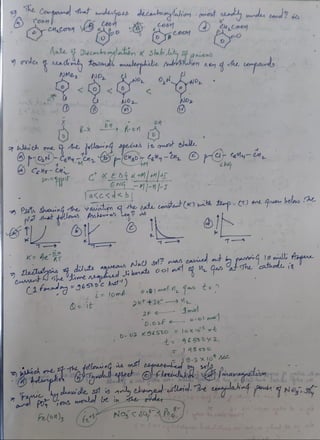 The compound that undergoes decarboxylation most readily under cond? is
COOH CH2COOH COOH COOH CH2COOH
Rate of Decarboxylation ∝ Stability of anion
→ order of reactivity towards nucleophilic substitution rxn of the compounds
NMe2 NO2 NO2 O2N NO2
< < <
Cl Cl NO2 NO2
→ Which one of the following species is most stable
(a) p-O2N-C6H4-CH2 (b) p-CH3O-C6H4-CH2 (c) p-Cl-C6H4-CH2
(d) C6H5-CH2
C+ ∝ EDG +M/+H/+I
EWG -M/-H/-I
a<c<d<b
→ Plots showing the variation of the rate constant (K) with temp. (T) are given below. The
plot that follows Arrhenius Eqn? is
(a) (b) (c) (d)
K T
→ Electrolysis of dilute aqueous NaCl sol? was carried out by passing 10 milli Ampere
current. The time required to liberate 0.01 mol of H2 gas at the cathode is
(1 faraday = 96500 C mol-1)
i = 10mA 0.01 mol H2 gas t = ?
Q = it
2H+ + 2e- → H2
2F 1 mol
0.02F 0.01 mol
0.02 × 96500 = 10 × 10-3 × t
t = 96500 × 2
= 193000
19.3 × 10^4 sec
→ Which one of the following is not represented by sols
(a) Adsorption (b) Tyndall effect (c) Flocculation (d) Paramagnetism
→ Ferric hydroxide sol is only charged colloid. The coagulating power of NO3-,
and ions would be in the order
Fe(OH)3